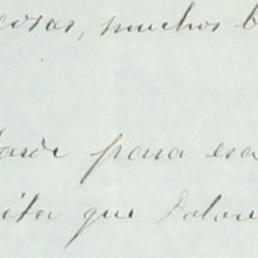 cosas, muchos b
tarde para esa
ita que Dolores